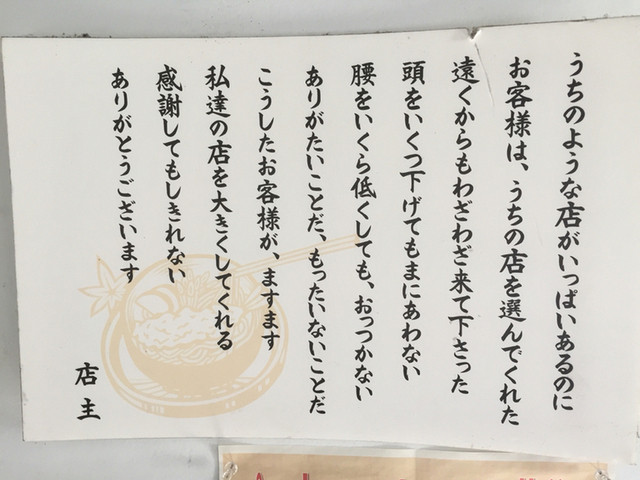 うちのような店がいっぱいあるのに
お客様は、うちの店を選んでくれた
遠くからもわざわざ来て下さった
頭をいくつ下げてもまにあわない
腰をいくら低くしても、おっつかない
ありがたいことだ、もったいないことだ
こうしたお客様が、ますます
私達の店を大きくしてくれる
感謝してもしきれない
ありがとうございます
店主